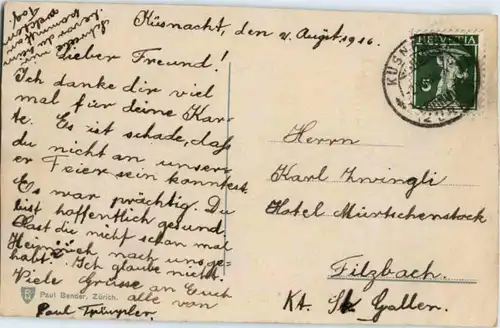 Küsnacht, den 4. August 1916.
Lieber Freund!
Ich danke dir viel
mal für deine Kar-
te. Es ist schade, daß
du nicht an unser-
er Feier sein konntest.
Es war prächtig. Du
bist hoffentlich gesund.
Hast du nicht schon mal
Heimweh nach uns ge-
habt? Ich glaube nicht.
Viele Grüsse an Euch
alle von
Paul Trümpler.
Schreibe mir
wann du
Paul Bender, Zürich.
HELVETIA
5
KÜSN
Herrn
Karl Zwingli
Hotel Mürtschenstock
Filzbach.
Kt. St. Gallen.